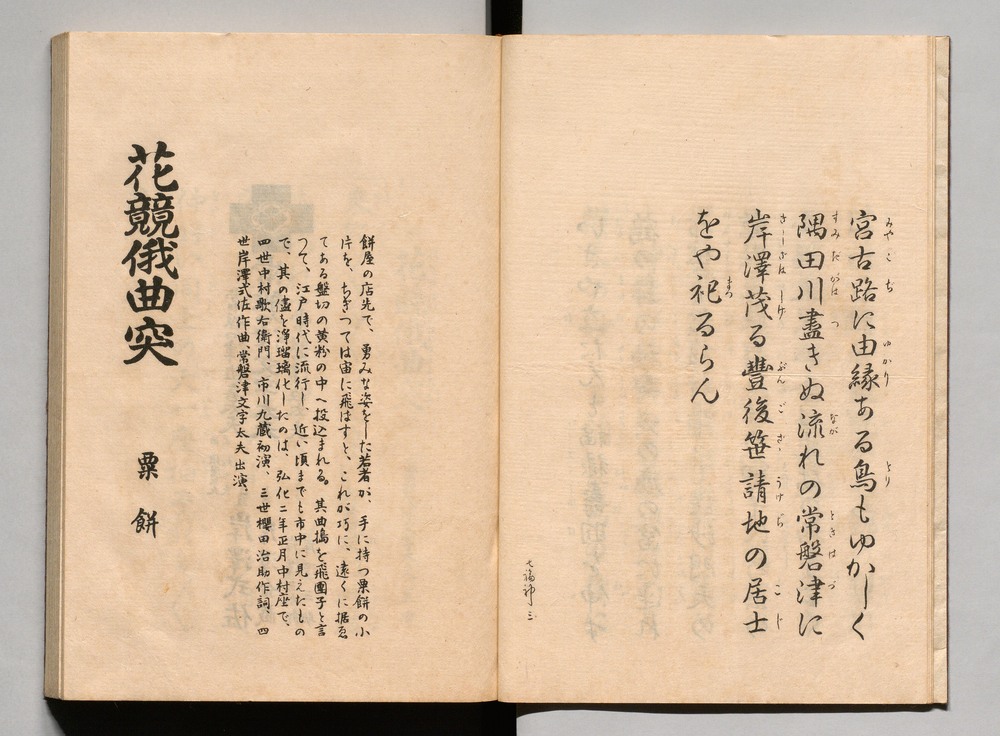 宮古路に由縁ある鳥もゆかしく
隅田川盡きぬ流れの常磐津に
岸澤茂る豐後笹請地の居士
をや祀るらん
七福神 三
餅屋の店先で、勇みな姿をした若者が、手に持つ粟餅の小
片を、ちぎつては宙に飛ばすと、これが巧に、遠くに据ゑ
てある盤切の黄粉の中へ投込まれる。其曲搗を飛團子と言
つて、江戸時代に流行し、近い頃までも市中に見えたもの
で、其の儘を浄瑠璃化したのは、弘化二年正月中村座で、
四世中村歌右衛門、市川九蔵初演、三世櫻田治助作詞、四
世岸澤式佐作曲、常磐津文字太夫出演。
花競俄曲突
粟餅